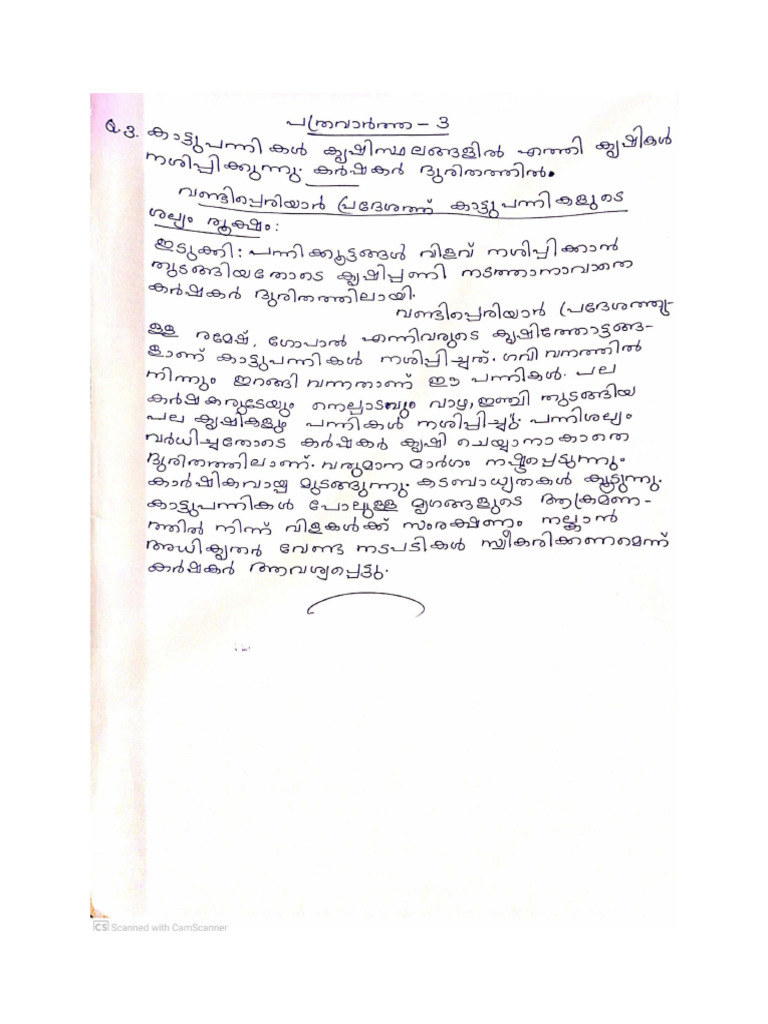 പത്രവാർത്ത - 3
Q.3. കാട്ടുപന്നികൾ കൃഷിസ്ഥലങ്ങളിൽ എത്തി കൃഷികൾ
നശിപ്പിക്കുന്നു. കർഷകർ ദുരിതത്തിൽ.
വണ്ടിപ്പെരിയാർ പ്രദേശത്ത് കാട്ടുപന്നികളുടെ
ശല്യം രൂക്ഷം:
ഇടുക്കി: പന്നിക്കൂട്ടങ്ങൾ വിളവ് നശിപ്പിക്കാൻ
തുടങ്ങിയതോടെ കൃഷിപ്പണി നടത്താനാവാതെ
കർഷകർ ദുരിതത്തിലായി.
വണ്ടിപ്പെരിയാർ പ്രദേശത്തു-
ള്ള രമേഷ്, ഗോപാൽ എന്നിവരുടെ കൃഷിത്തോട്ടങ്ങ-
ളാണ് കാട്ടുപന്നികൾ നശിപ്പിച്ചത്. ഗവി വനത്തിൽ
നിന്നും ഇറങ്ങി വന്നതാണ് ഈ പന്നികൾ. പല
കർഷകരുടേയും നെല്പാടവും വാഴ, ഇഞ്ചി തുടങ്ങിയ
പല കൃഷികളും പന്നികൾ നശിപ്പിച്ചു. പന്നിശല്യം
വർധിച്ചതോടെ കർഷകർ കൃഷി ചെയ്യാനാകാതെ
ദുരിതത്തിലാണ്. വരുമാന മാർഗം നഷ്ടപ്പെടുന്നും.
കാർഷികവായ്പ മുടങ്ങുന്നു. കടബാധ്യതകൾ കൂടുന്നു.
കാട്ടുപന്നികൾ പോലുള്ള മൃഗങ്ങളുടെ ആക്രമണ-
ത്തിൽ നിന്ന് വിളകൾക്ക് സംരക്ഷണം നല്കാൻ
അധികൃതർ വേണ്ട നടപടികൾ സ്വീകരിക്കണമെന്ന്
കർഷകർ ആവശ്യപ്പെട്ടു.
CS Scanned with CamScanner